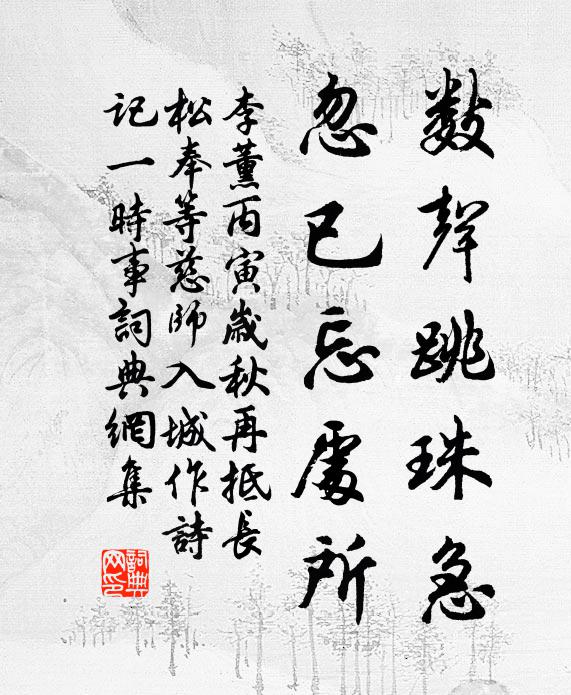 數聲跳珠急
忽已忘處所
李薰丙寅歲秋再抵長
松奉等慈師入城作詩
記一時事詞典網集
詞典
网印